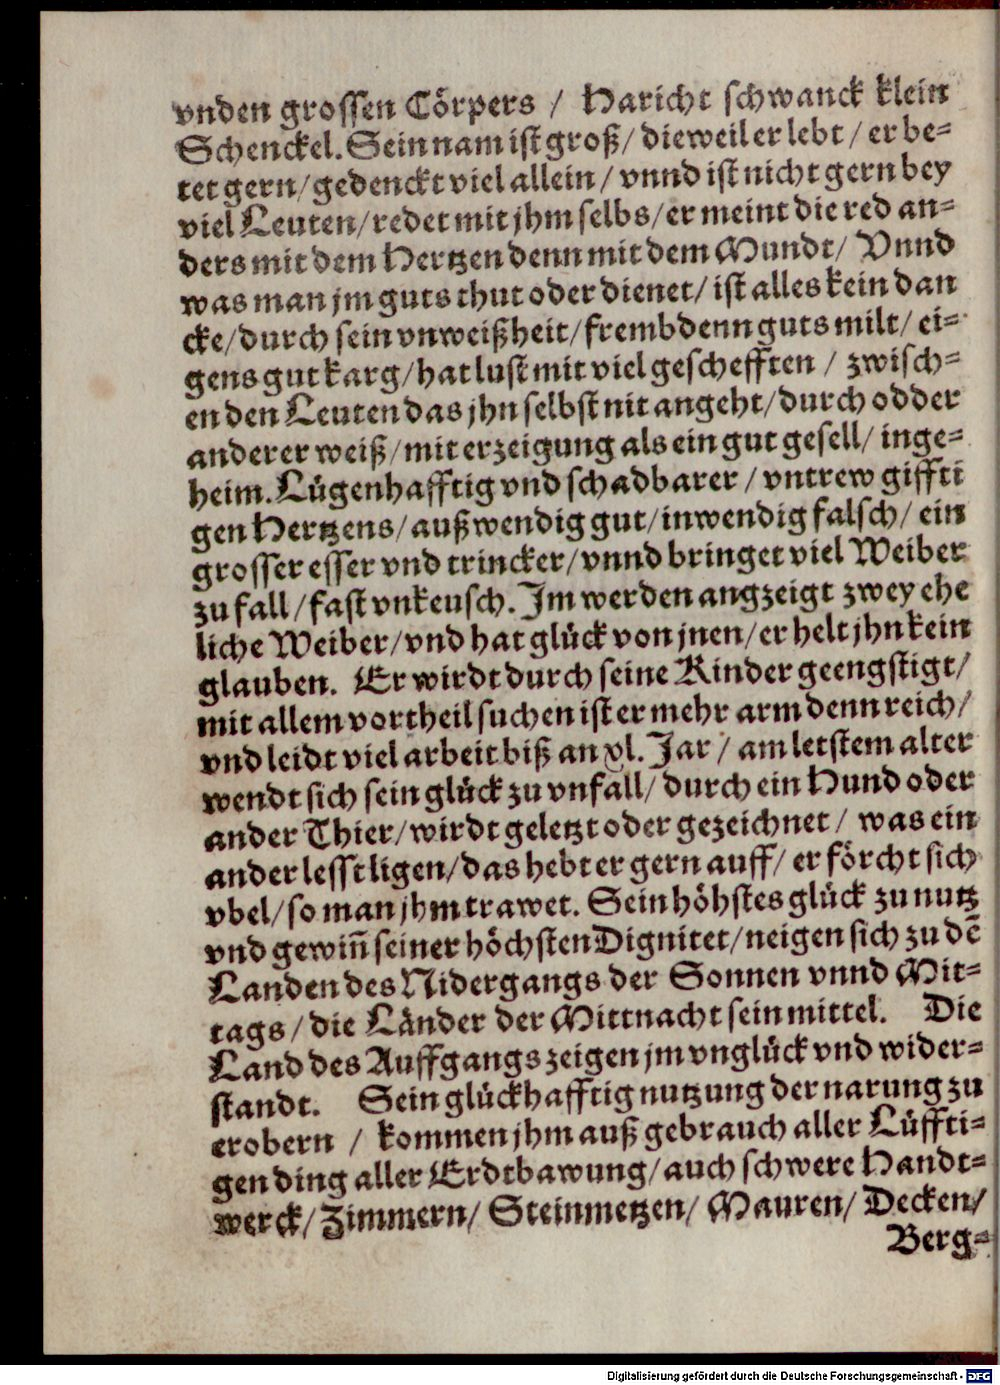 vnden grossen Cörpers / Haricht schwanck klein
Schenckel. Sein nam ist groß / dieweil er lebt / er be=
tet gern / gedenckt viel allein / vnnd ist nicht gern bey
viel Leuten / redet mit jhm selbs / er meint die red an=
ders mit dem Hertzen denn mit dem Mundt / Vnnd
was man jm guts thut oder dienet / ist alles kein dan
cke / durch sein vnweißheit / frembdenn guts milt / ei=
gens gut karg / hat lust mit viel geschefften / zwisch=
en den Leuten das jhn selbst nit angeht / durch odder
anderer weiß / mit erzeigung als ein gut gesell / inge=
heim. Lügenhafftig vnd schadbarer / vntrew giffti
gen Hertzens / außwendig gut / inwendig falsch / ein
grosser esser vnd trincker / vnnd bringet viel Weiber
zu fall / fast vnkeusch. Jm werden angzeigt zwey ehe
liche Weiber / vnd hat glück von jnen / er helt jhn kein
glauben. Er wirdt durch seine Kinder geengstigt /
mit allem vortheil suchen ist er mehr arm denn reich /
vnd leidt viel arbeit biß an xl. Jar / am letstem alter
wendt sich sein glück zu vnfall / durch ein Hund oder
ander Thier / wirdt geletzt oder gezeichnet / was ein
ander lesst ligen / das hebt er gern auff / er förcht sich
vbel / so man jhm trawet. Sein höhstes glück zu nutz
vnd gewiñ seiner höchsten Dignitet / neigen sich zu dē
Landen des Nidergangs der Sonnen vnnd Mit=
tags / die Länder der Mittnacht sein mittel. Die
Land des Auffgangs zeigen jm vnglück vnd wider=
standt. Sein glückhafftig nutzung der narung zu
erobern / kommen jhm auß gebrauch aller Lüffti=
gen ding aller Erdtbawung / auch schwere Handt=
werck / Zimmern / Steinmetzen / Mauren / Decken /
Berg=
Digitalisierung gefördert durch die Deutsche Forschungsgemeinschaft - DFG